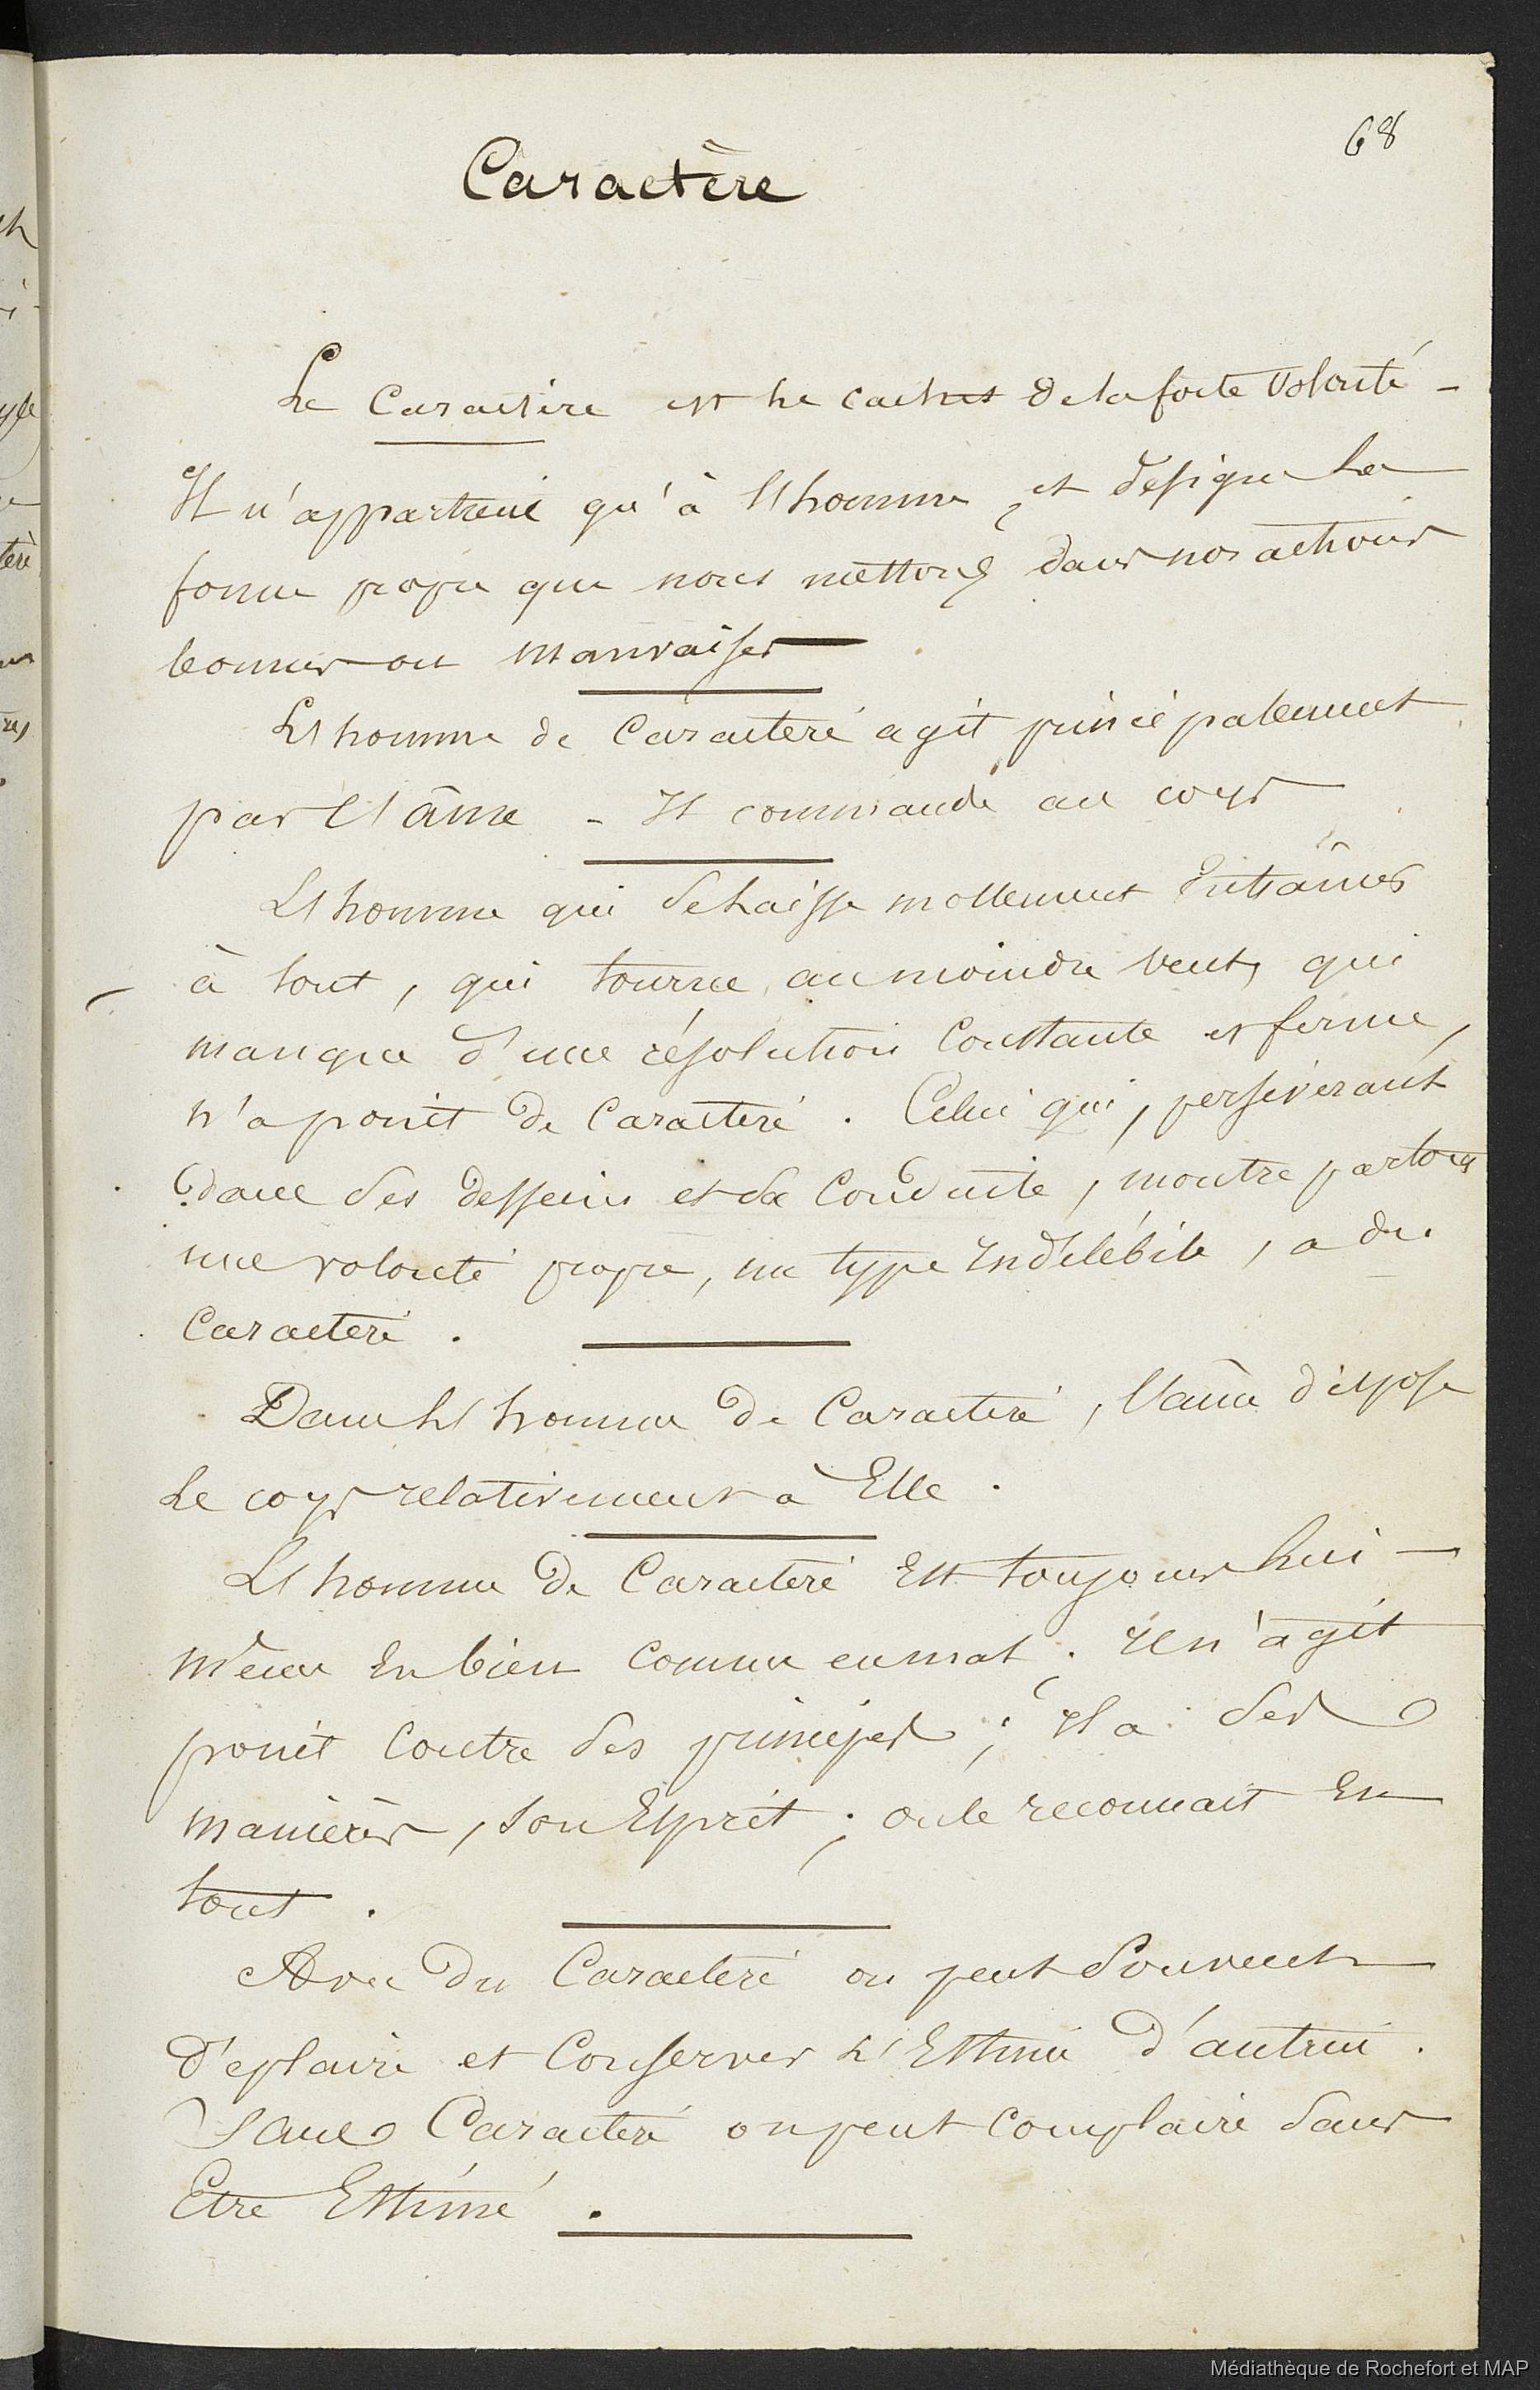 68
Caractère
Le Caractère est le cachet de la forte volonté -
Il n'appartient qu'à l'homme, et désigne la
forme propre que nous mettons dans nos actions
bonnes ou mauvaises
L'homme de Caractère agit principalement
par l'âme - Il commande au corps
L'homme qui se laisse mollement Entraîner
à tout, qui tourne au moindre vent, qui
manque d'une résolution Constante et ferme,
n'a point de Caractère. Celui qui, persévérant
dans ses desseins et sa Conduite, montre partout
une volonté propre, un type indélébile, a du
Caractère.
Dans l'homme de Caractère, l'âme dispose
le corps relativement à Elle.
L'homme de Caractère Est toujours lui-
même En bien comme en mal; il n'agit
point Contre ses principes; il a ses
manières, son Esprit; on le reconnait En
tout.
Avec du Caractère on peut Souvent
déplaire et Conserver l'Estime d'autrui.
Sans Caractère on peut complaire sans
Etre Estimé.
Médiathèque de Rochefort et MAP